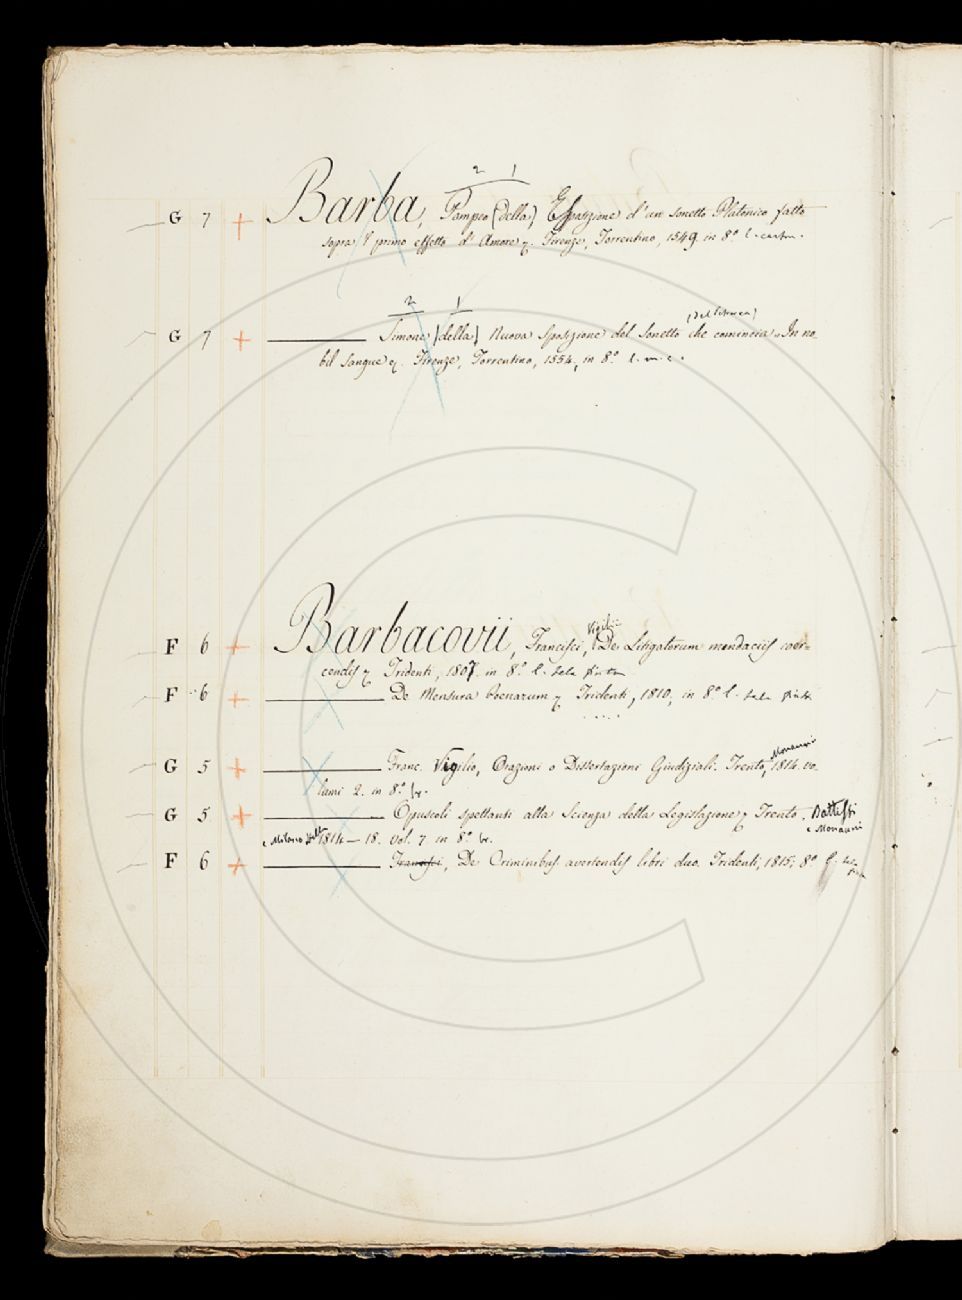 2 1
G 7 + Barba, Pompeo (della) Esposizione d'un sonetto Platonico fatto
sopra il primo effetto d'Amore &. Firenze, Torrentino, 1549. in 8° l.
2 1
(del Petrarca)
G 7 + Simone (della) Nuova Sposizione del Sonetto che comincia In no-
bil sangue &. Firenze, Torrentino, 1554, in 8° l. m. c.
Vigilii
F 6 + Barbacovii, Francisci, De Litigatorum mendaciis coer=
cendis & Tridenti, 1807. in 8° l. tela tinta
F 6 + De Mensura poenarum & Tridenti, 1810, in 8° l. tela tinta
Monauni
G 5 + Franc. Vigilio, Orazioni o Dissertazioni Giudiziali. Trento, 1814. vo-
lumi 2. in 8° br.
G 5 + Opuscoli spettanti alla Scienza della Legislazione & Trento. Battisti
e Monauni
e Milano 1814 — 18. vol. 7. in 8° br.
F 6 + Francisci, De Criminibus avertendis libri duo. Tridenti, 1815; 8° l. tela
tinta